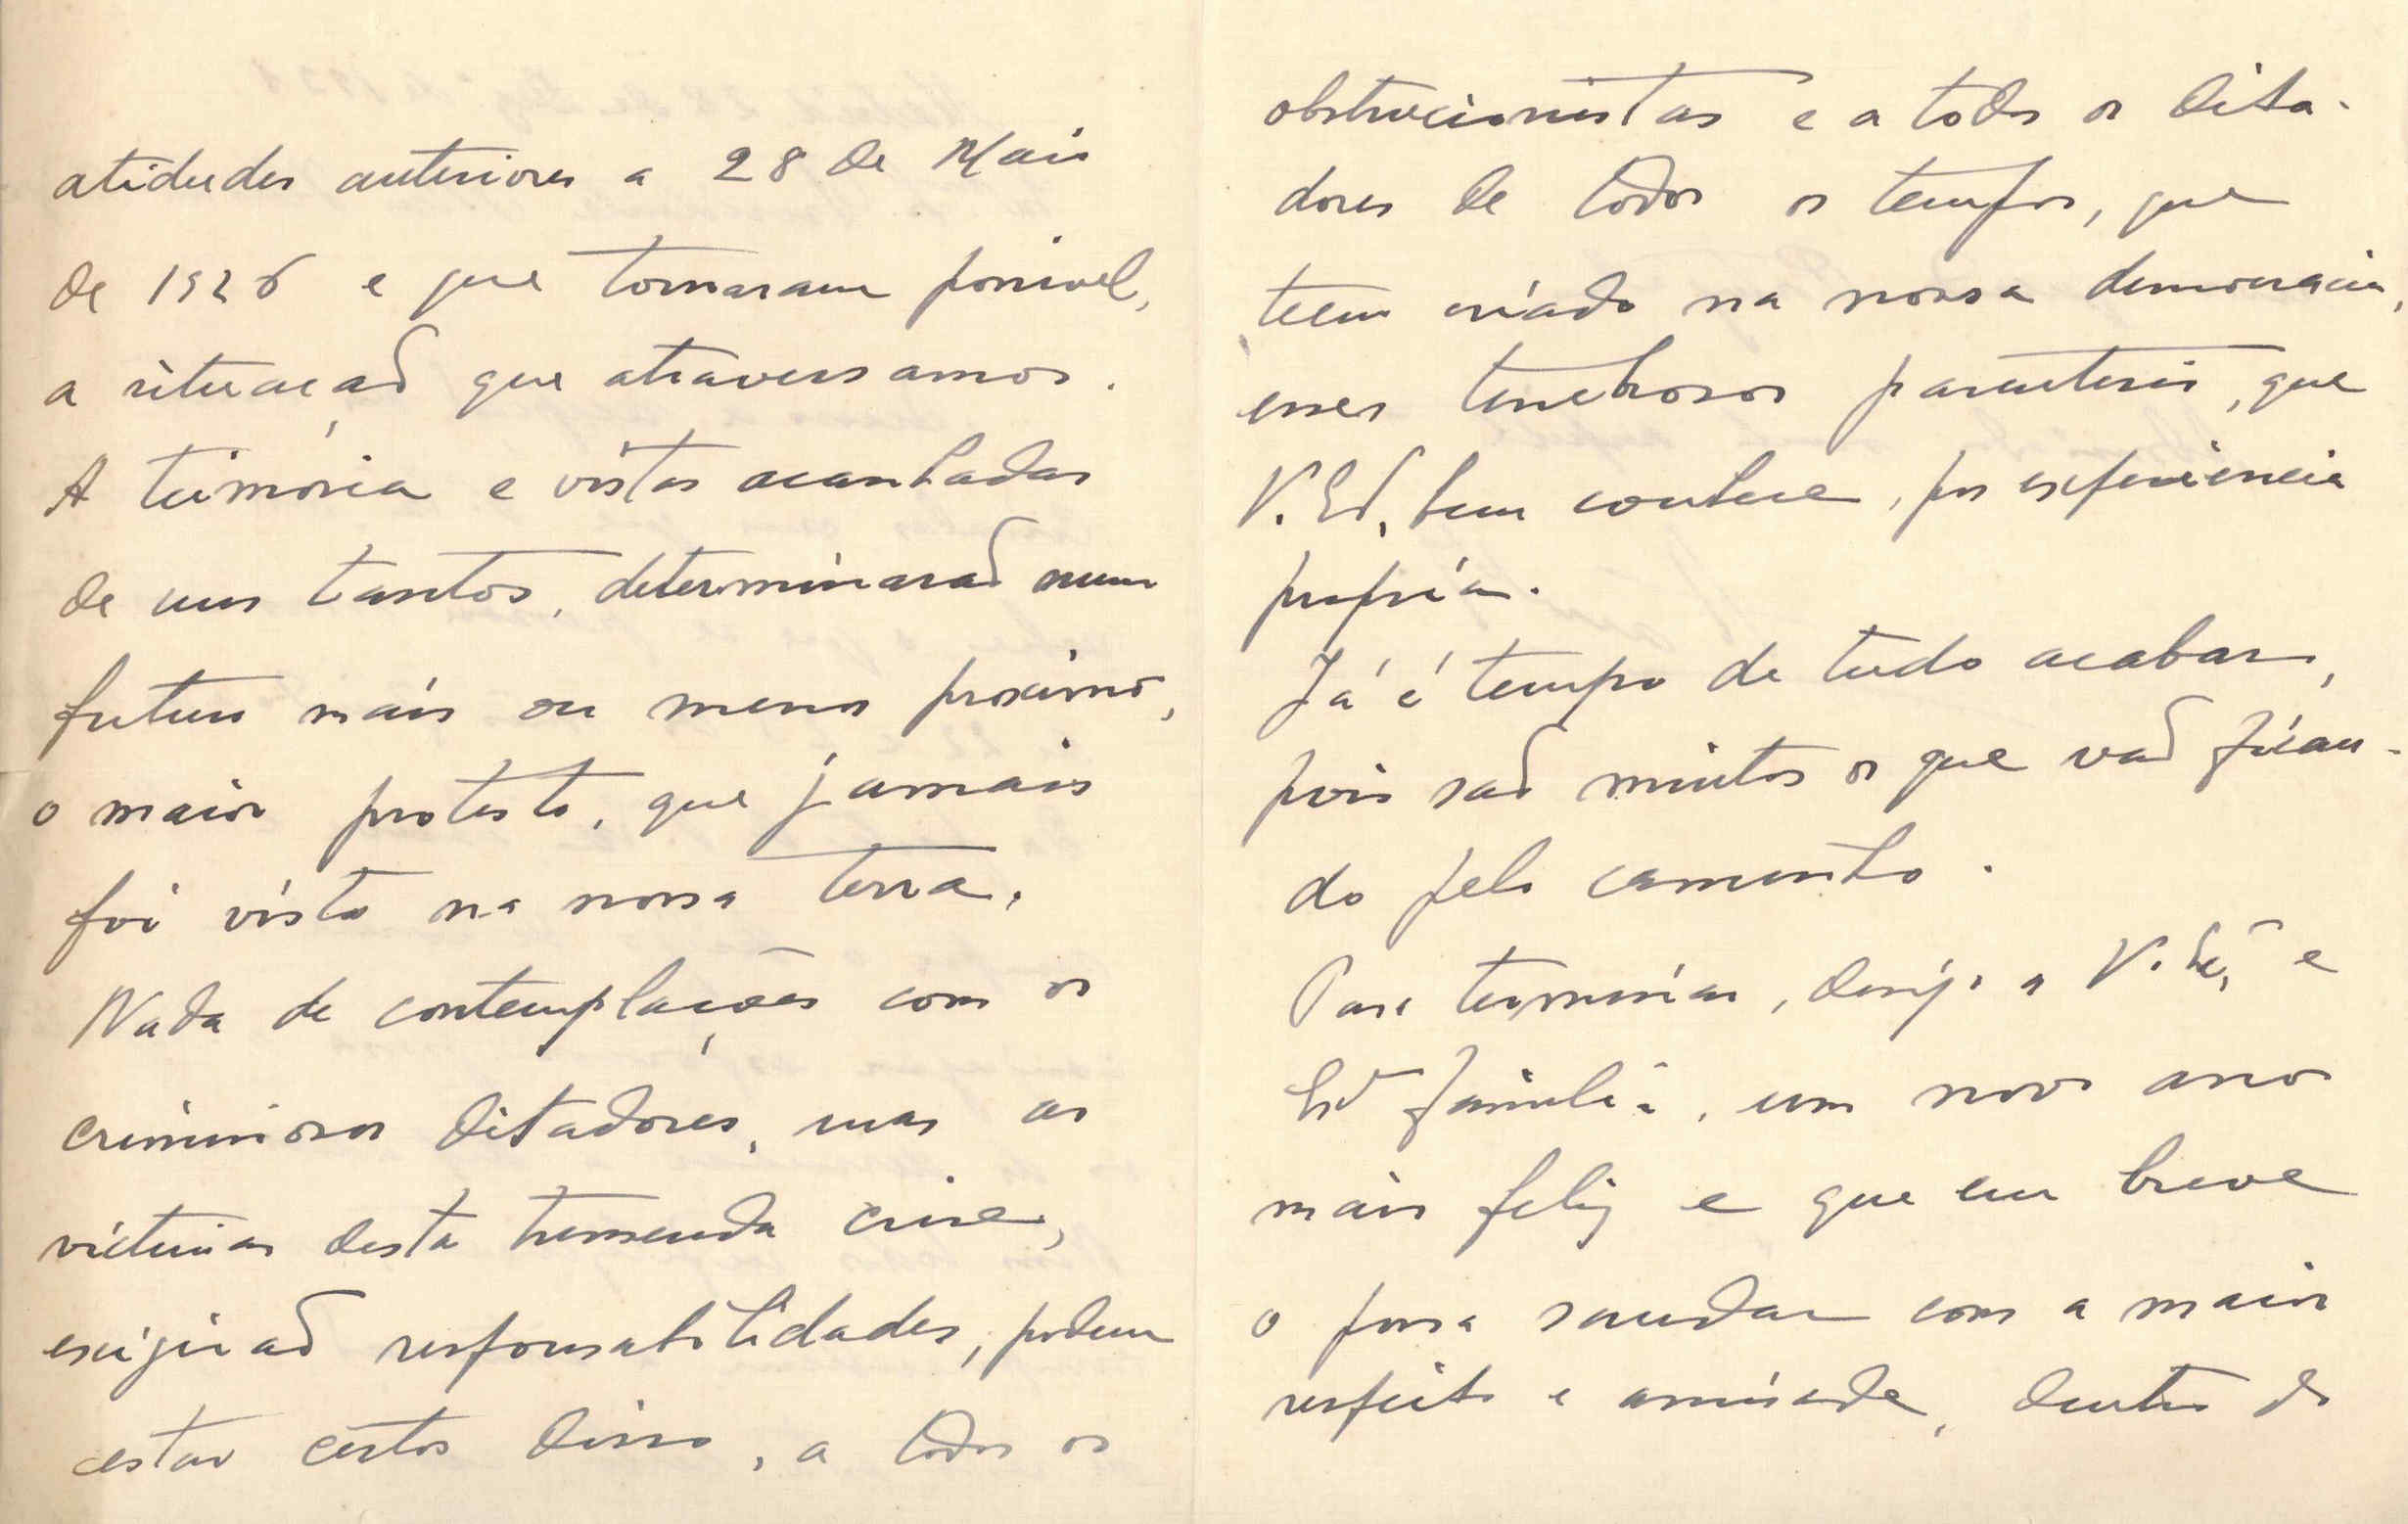 atidudes anteriores a 28 de Maio
de 1926 e que tornaram possivel,
a situação que atravessamos.
A teimosia e vistas acanhadas
de uns tantos, determinarão num
futuro mais ou menos proximo,
o maior protesto, que jamais
foi visto na nossa terra.
Nada de contemplações com os
criminosos ditadores, mas as
victimas desta tremenda crise,
exigirão responsabilidades, podem
estar certos disso, a todos os
obstrucionistas e a todos os dita-
dores de todos os tempos, que
teem criado na nossa democracia,
esses tenebrosos parentesis, que
V. Ex.ª bem conhece, por experiencia
propria.
Já é tempo de tudo acabar,
pois são muitos os que vão fican-
do pelo caminho.
Para terminar, desejo a V. Ex.ª e
Ex.ma familia, um novo ano
mais feliz e que em breve
o possa saudar com a maior
respeito e amisade, dentro do